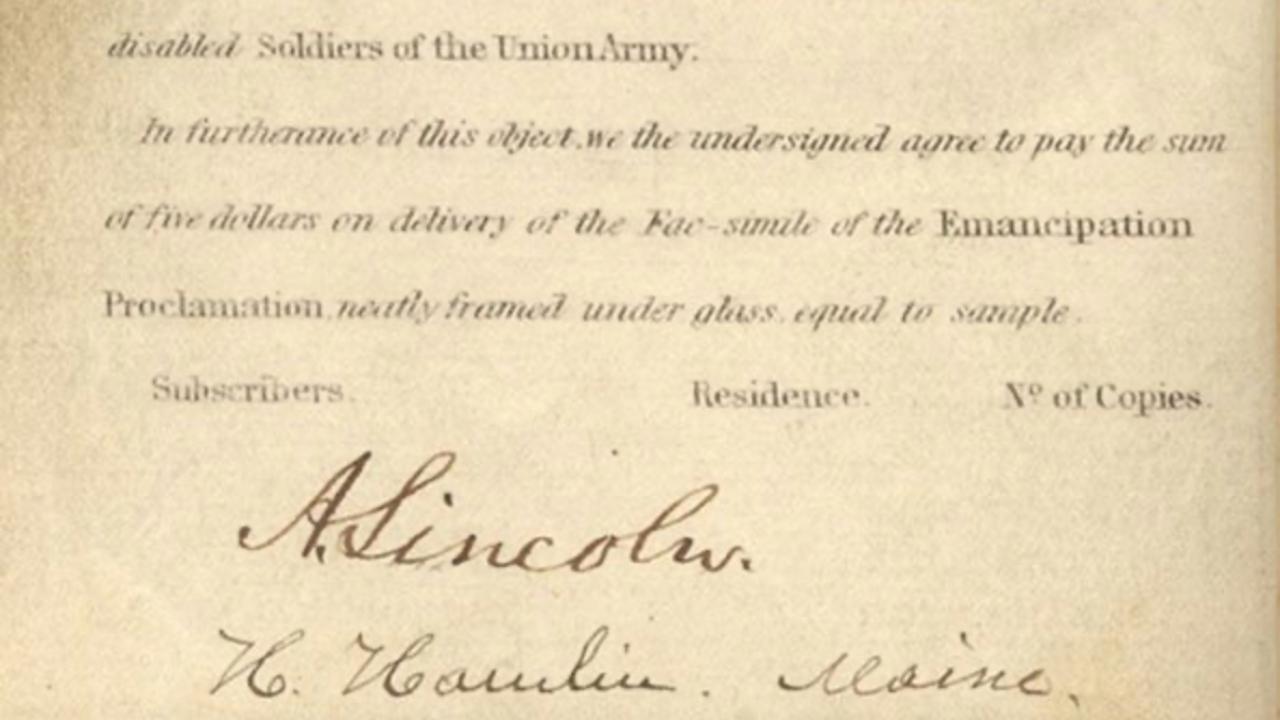 disabled Soldiers of the Union Army.
In furtherance of this object, we the undersigned agree to pay the sum
of five dollars on delivery of the Fac-simile of the Emancipation
Proclamation, neatly framed under glass, equal to sample.
Subscribers. Residence. Nº of Copies.
A. Lincoln.
H. Hamlin. Maine.